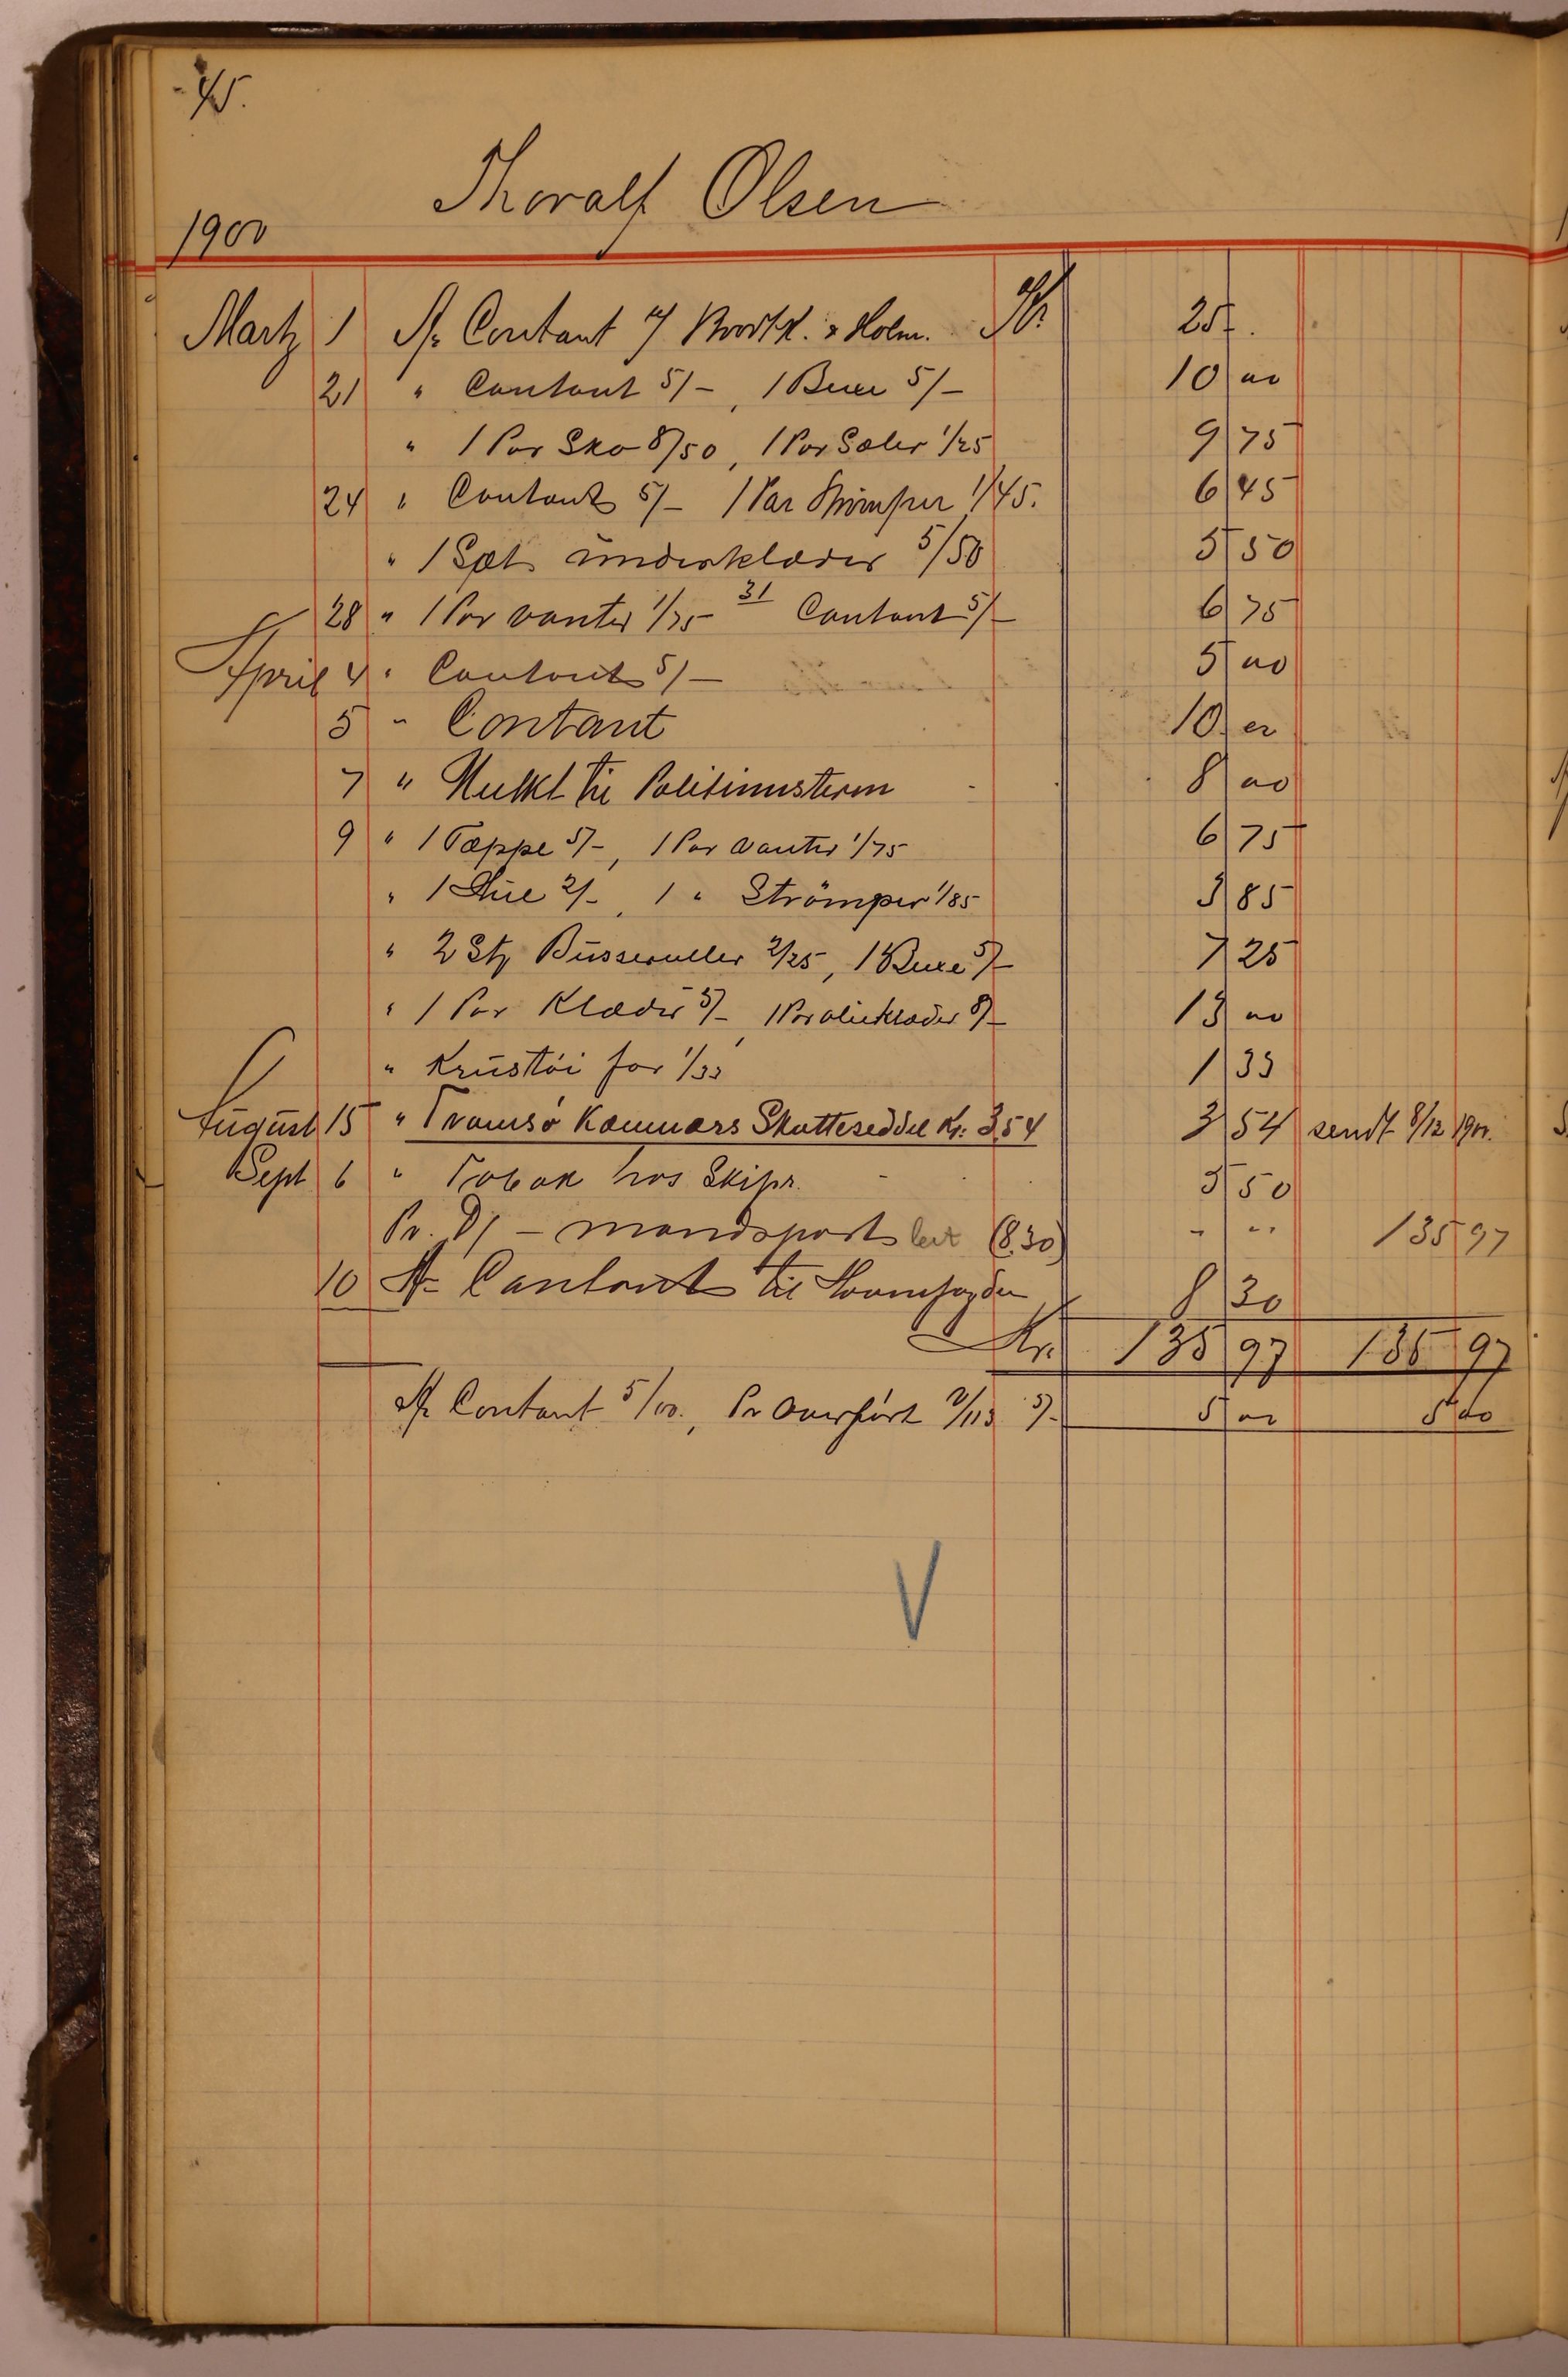 Thoralf Olsen
1900
Martz 1 An Contant Holm. Kr. 25
21 " Contant 5/- , 1 Buxe 5/- 10 00
" 1 Par Sko 8/50, 1 Par Saler 1/25 9 75
24 " Contant 5/- 1 Par Strömper 1/45. 6 45
" 1 Sæt ünderklæder 5/50 5 50
28 " 1 Par vanter 1/75 31 Contant 5/- 6 75
April 4 " Contant 5/- 5 00
5 " Contant 10 00
7 " Mulkt til Politimesteren 8 00
9 " 1 Tæppe 5/-, 1 Par vanter 1/75 6 75
" 1 Hue 2/-, 1 " Strömper 1/85 3 85
" 2 Stz Büsseruller 2/25, 1 Buxe 5/- 7 25
" 1 Par Klæder 5/- 1 Par olieklæder 8/- 13 00
" Krüstöi for 1/33 1 33
Aügust 15 " Tromsø Kæmnærs Skatteseddel Kr. 3,54 3 54 sendt 8/12 1900.
Sept 6 " Tobak hos Skipr. 5 50
Pr. D/ - mandspart (8.30) - " 135 97
10 An Contant til 8 30
Kr. 135 97 135 97
An Contant 5/00., Pr Overført 5/- 5 00 5 00
V